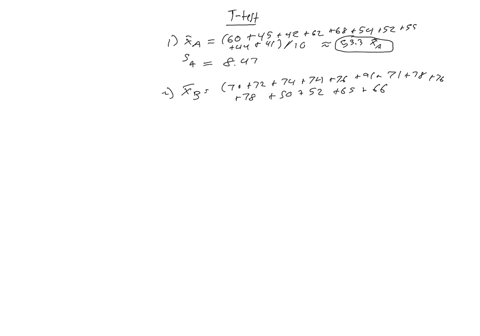 T-test
1) x̄A = (60 + 45 + 42 + 62 + 68 + 54 + 52 + 55
+44 + 41) / 10 ≈ 53.3 x̄A
SA = 8.47
2) x̄B = (70 + 72 + 74 + 74 + 76 + 91 + 71 + 78 + 76
+78 + 50 + 52 + 65 + 66